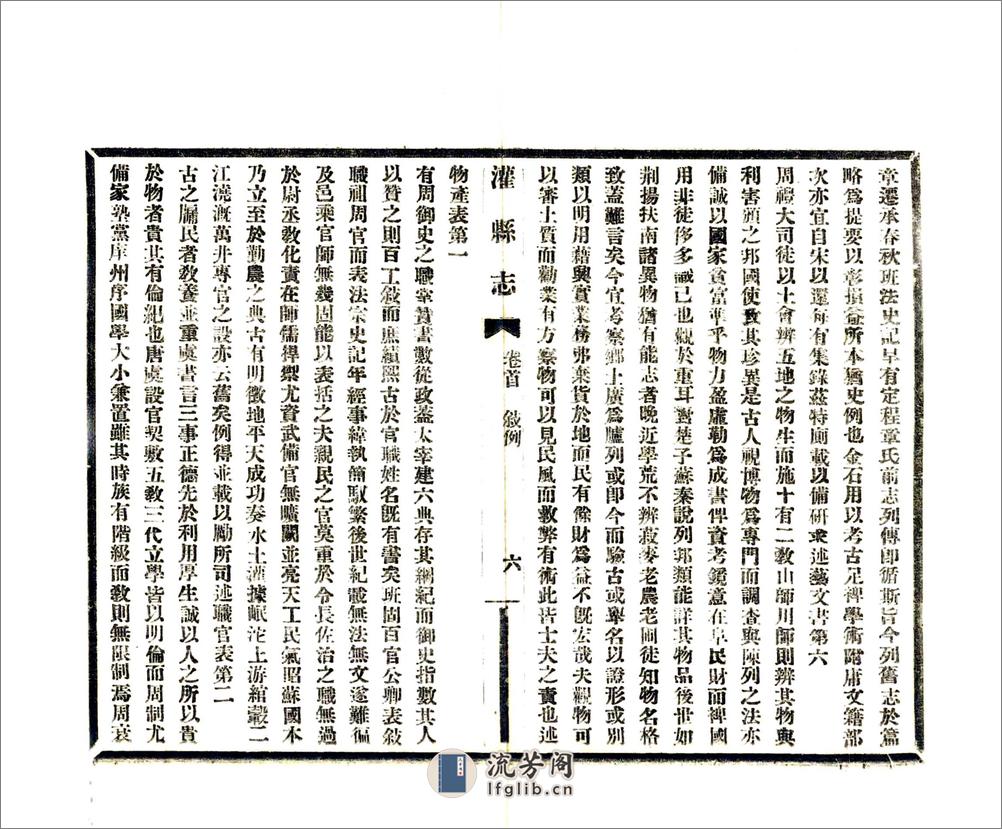 章遷承春秋班法史記早有定程章氏前志列傳卽循斯旨今列舊志於篇
略爲提要以彰損益所本猶史例也金石用以考古足裨學術附庸文籍部
次亦宜自宋以還每有集錄茲特廁載以備研求述藝文書第六
周禮大司徒以土會辨五地之物生而施十有二敎山師川師則辨其物與
利害頒之邦國使致其珍異是古人視博物爲專門而調查與陳列之法亦
備誠以國家貧富準乎物力盈虛勒爲成書俾資考鏡意在阜民財而裨國
用非徒侈多識已也觀於重耳對楚子蘇秦說列邦類能詳其物品後世如
荆揚扶南諸異物猶有能志者晚近學荒不辨菽麥老農老圃徒知物名格
致蓋難言矣今宜考察鄉土廣爲臚列或卽今而驗古或舉名以證形或別
類以明用藉興實業務弗棄貨於地而民有餘財爲益不旣宏哉夫觀物可
以審土質而勸業有方察物可以見民風而救弊有術此皆士夫之責也述
物產表第一
灌縣志 卷首 敍例 六
有周御史之職掌贊書數從政蓋太宰建六典存其綱紀而御史指數其人
以贊之則百工敍而庶績熙古於官職姓名旣有書矣班固百官公卿表敍
職祖周官而表法宗史記年經事緯執簡馭繁後世紀載無法無文遂難徧
及邑乘官師無幾固能以表括之夫親民之官莫重於令長佐治之職無過
於尉丞敎化責在師儒捍禦尤資武備官無曠闕並亮天工民氣昭蘇國本
乃立至於勤農之典古有明徵地平天成功奏水土灌據岷沱上游綰轂二
江澆漑萬井專官之設亦云舊矣例得並載以勵所司述職官表第二
古之牖民者敎養並重虞書言三事正德先於利用厚生誠以人之所以貴
於物者貴其有倫紀也唐虞設官契敷五敎三代立學皆以明倫而周制尤
備家塾黨庠州序國學大小兼置雖其時族有階級而敎則無限制焉周衰
流芳阁
lfglib.cn